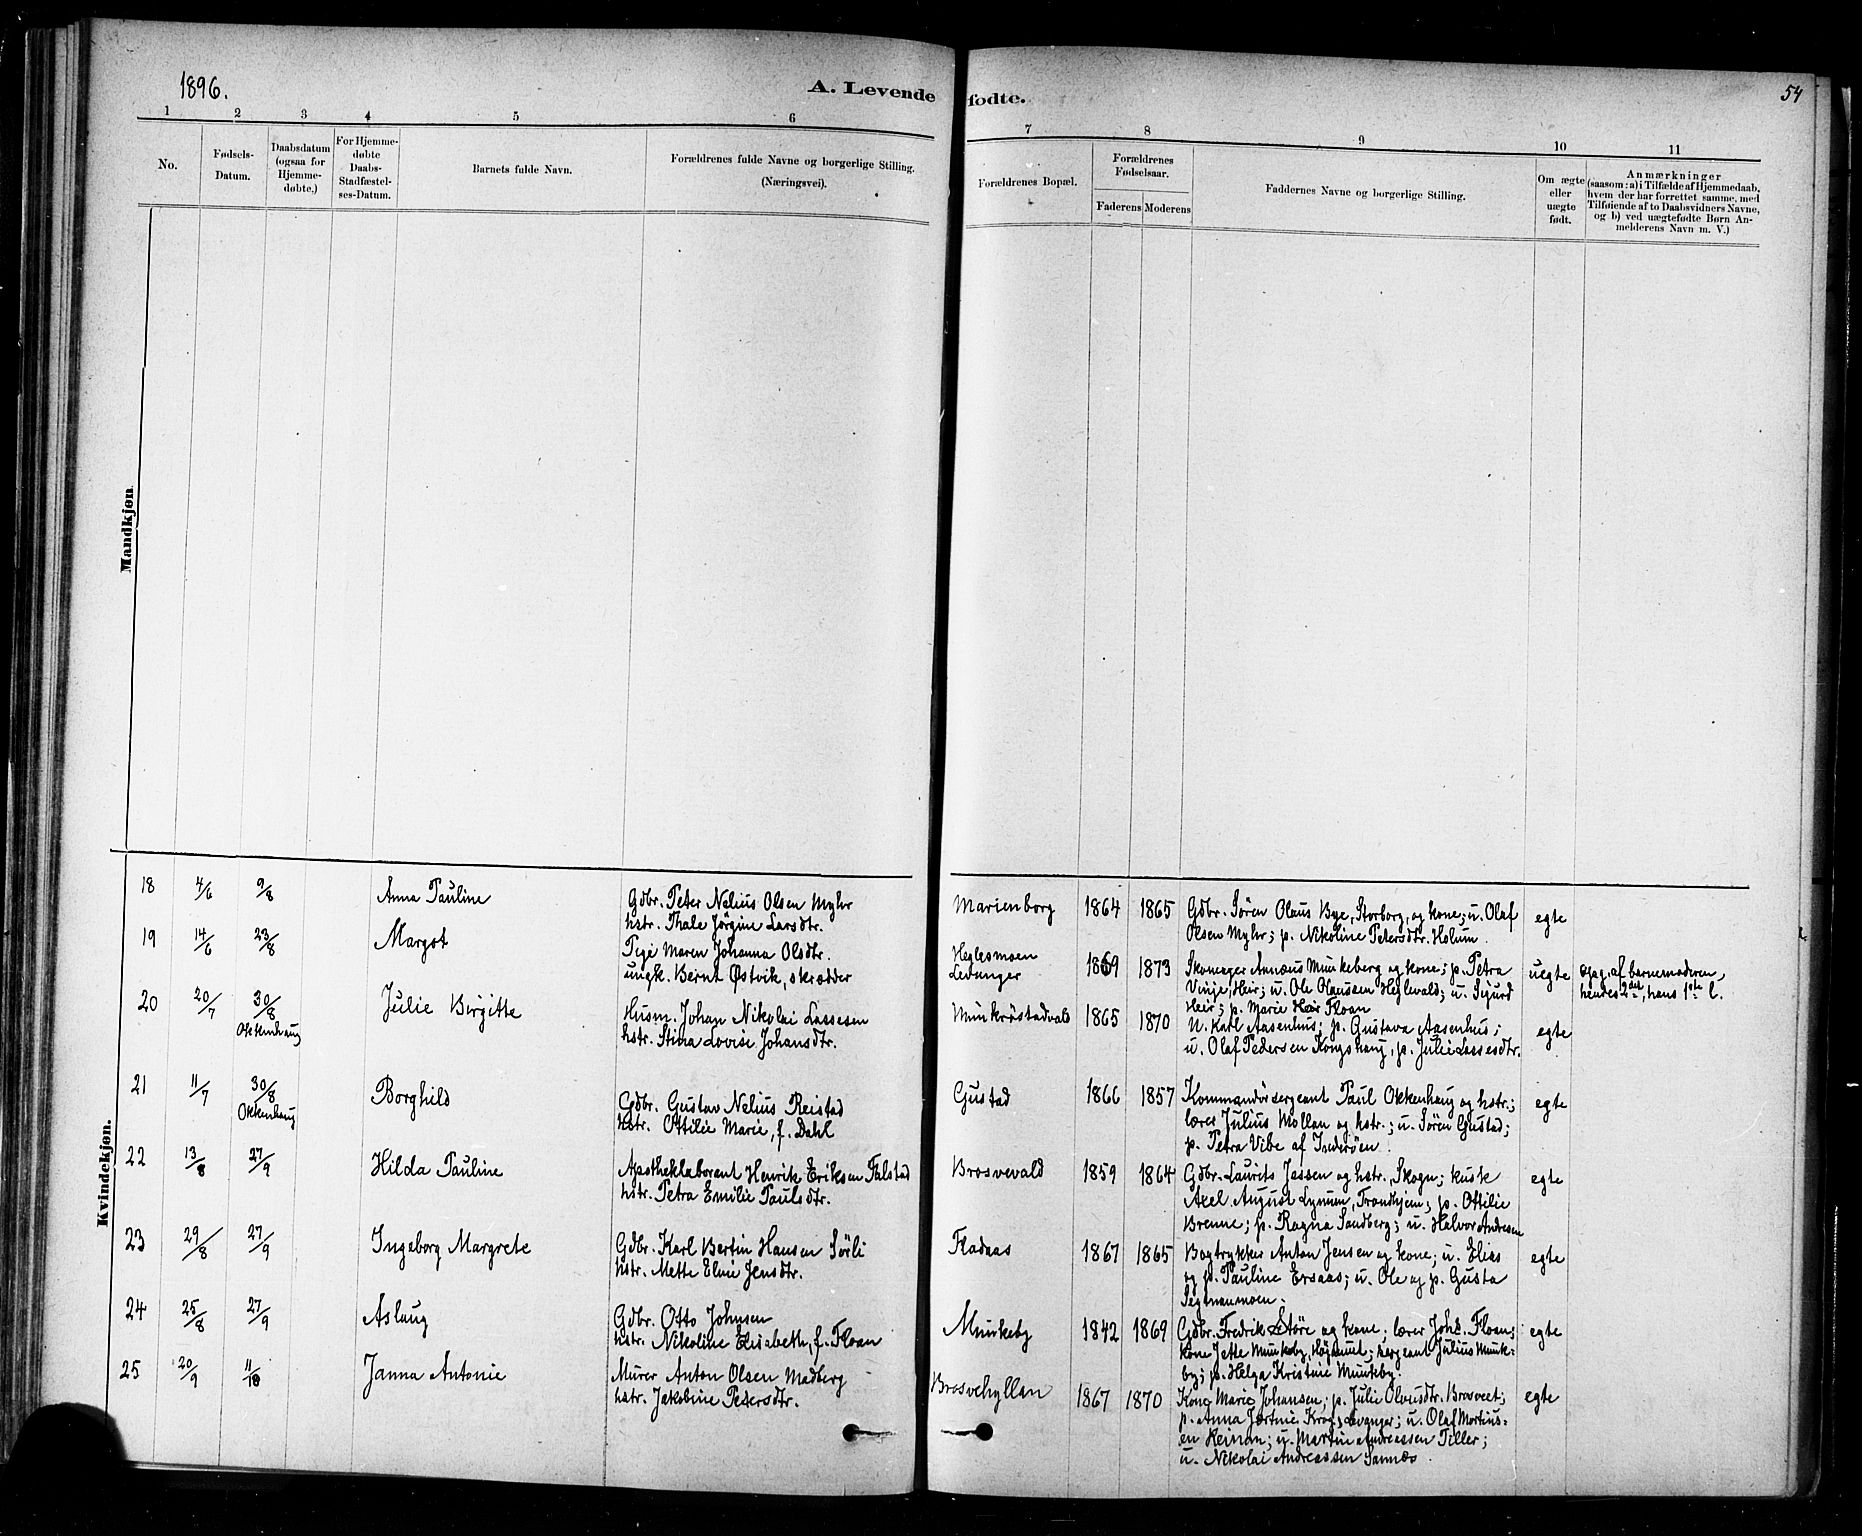 1896.
A. Levende fødte.
54
1 2 3 4 5 6 7 8 9 10 11
No.
Fødsels-
Datum.
Daabsdatum
(ogsaa for
Hjemme-
døbte.)
For Hjemme-
døbte
Daabs-
Stadfæstel-
ses-Datum.
Barnets fulde Navn.
Forældrenes fulde Navne og borgerlige Stilling.
(Næringsvei).
Forældrenes Bopæl.
Forældrenes
Fødselsaar.
Faderens Moderens
Faddernes Navne og borgerlige Stilling.
Om ægte
eller
uægte
født.
Anmærkninger
(saasom: a) i Tilfælde af Hjemmedaab,
hvem der har forrettet samme, med
Tilføiende af to Daabsvidners Navne,
og b) ved uægtefødte Børn An-
melderens Navn m. V.)
Mandkjøn
Kvindekjøn.
18 4/6 9/8 Anna Pauline
Gdbr. Peter Nelius Olsen Myhr
hstr. Thale Jørgine Larsdtr.
Marienborg 1864 1865
Gdbr. Søren Olaus Bye, Storborg, og kone; u. Olaf
Olsen Myhr; p. Nikoline Petersdtr. Holum.
egte
19 14/6 23/8 Margot
Pige Maren Johanna Olsdtr.
ungk. Bernt Østvik, skrædder
Heglesmoen
Levanger
1869 1873
Skomager Annæus Munkeberg og kone; p. Petra
Vinje, Heir; u. Ole Olaussen Heglevald; u. Sigurd
Heir; p. Marie Floan
uegte
opg. af barnemoderen,
hendes 2det, hans 1ste l.
20 20/7 30/8
Okkenhaug
Julie Birgitte
Husm. Johan Nikolai Lassesen
hstr. Stina Lovise Johansdtr.
Munkrøstadvald 1865 1870
U. Karl Aasenhus; p. Gustava Aasenhus;
u. Olaf Pedersen Kongshaug, p. Julie Lassesdtr.
egte
21 11/7 30/8
Okkenhaug
Borghild
Gdbr. Gustav Nelius Reistad
hstr. Ottilie Marie, f. Dahl
Gustad 1866 1857
Kommandørsergeant Paul Okkenhaug og hstr.;
lærer Julius Mollan og hstr.; u. Søren Gustad;
p. Petra Vibe af Inderøen.
egte
22 13/8 27/9 Hilda Pauline
Apotheklaborant Henrik Eriksen Falstad
hstr. Petra Emilie Paulsdtr.
Brosvevald 1859 1864
Gdbr. Laurits Jassen og hstr., Skogn; kusk
Axel August Lynum, Trondhjem; p. Ottilie
Brenne; p. Ragna Sandberg; u. Halvor Andresen
egte
23 29/8 27/9 Ingeborg Margrete
Gdbr. Karl Bertin Hansen Sørli
hstr. Mette Elise Jensdtr.
Fladaas 1867 1865
Bogtrykker Anton Jensen og kone; u. Elias
og p. Pauline Ersaas; u. Ole og p. Gusta
Segtnanmoen.
egte
24 25/8 27/9 Aslaug
Gdbr. Otto Johnsen
hstr. Nikoline Elisabeth, f. Floan
Munkeby 1842 1869
Gdbr. Fredrik Støre og kone; lærer Johs. Floan;
kone Jette Munkeby, Høgmut; sergeant Julius Munk-
by; p. Helga Kristine Munkeby.
egte
25 20/9 11/10 Janna Antonie
Murer Anton Olsen Madberg
hstr. Jakobine Petersdtr.
Brosvehyllan 1867 1870
Kone Marie Johansen; p. Julie Olvesdtr. Brosveet;
p. Anna Jærtnie Krog, Levanger; u. Olaf Mortius-
en Reinan; u. Martin Andreassen Tiller;
u. Nikolai Andreassen Sannæs.
egte